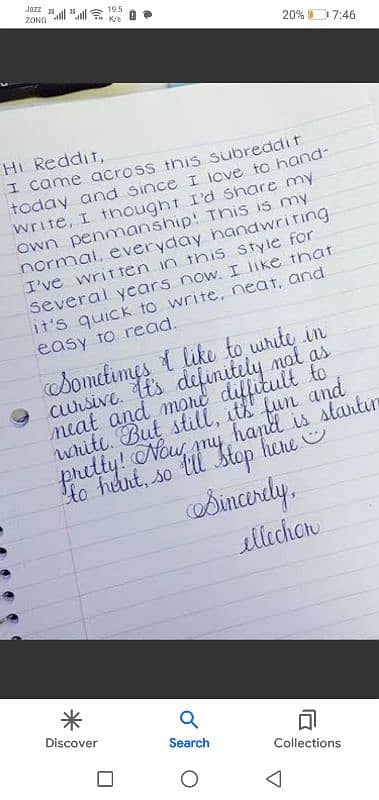 Jazz
ZONG
2G
3G
19.5
K/s
20%
7:46
Hi Reddit,
I came across this subreddit
today and since I love to hand-
write, I thought I'd share my
own penmanship! This is my
normal, everyday handwriting
I've written in this style for
several years now. I like that
it's quick to write, neat, and
easy to read.
Sometimes I like to write in
cursive. It's definitely not as
neat and more diffitult to
write. But still, it's fun and
pretty! Now my hand is startin
to hurt, so I'll stop here
Sincerely,
ellechon
Discover
Search
Collections